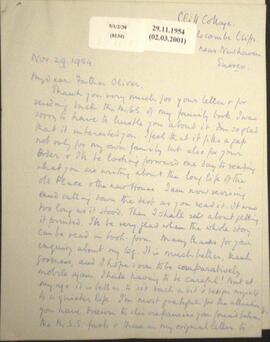 Cliff Cottage,
Telscombe Cliffs
near Newhaven
Sussex
5/1/2/39
(8134)
29.11.1954
(02.03.2001)
Nov. 29. 1954.
My dear Father Oliver,
Thank you very much for your letter & for
sending back the M.S.S. of my family book. I was
sorry to have to hustle you about it. I'm so glad
that it interested you. I feel that it fills a gap
not only for my own family but also for your
Order & I'll be looking forward one day to reading
what you are writing about the long life of the
old Place & the new House. I am now revising
and cutting down the text as you read it. It was
too long as it stood. Then I shall set about getting
it printed. I'll be very glad when the whole story
can be read in book form. Many thanks for your
enquiry about my leg. It is much better, thank
goodness, and I hope soon to be comparatively
mobile again. I hate having to be careful! But at
my age it is better to sit back a bit & resign myself
to a quieter life. I'm most grateful for the attention
you have given to discrepancies you found between
the M.S.S. facts & those in my original letters to